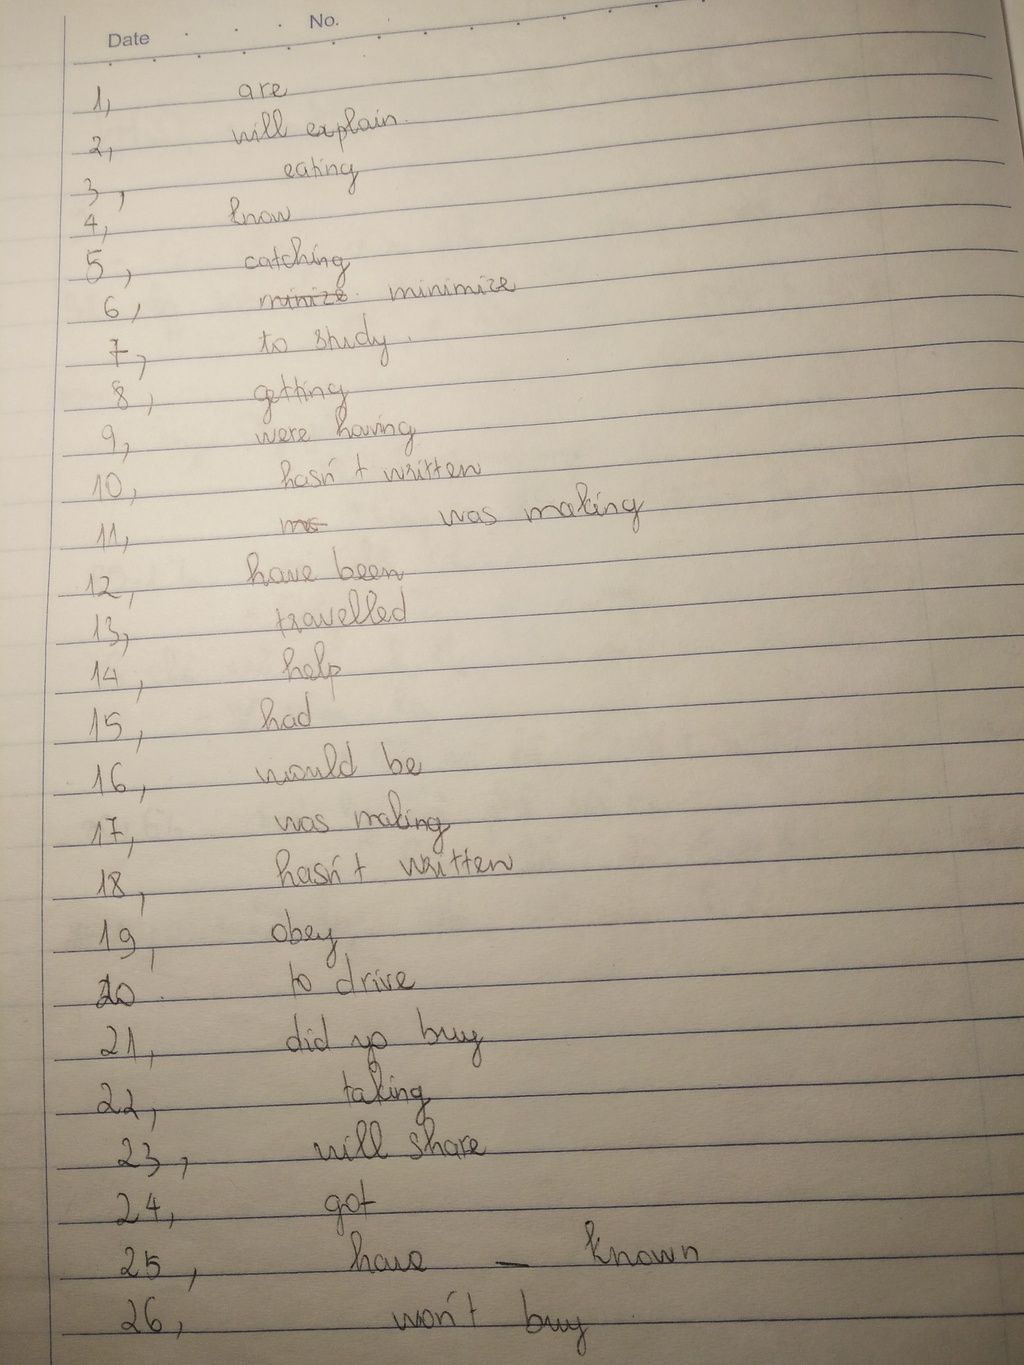 Date No.
1, are
2, will explain.
3, eating
4, know
5, catching
6, minize minimize
7, to study.
8, getting
9, were having
10, hasn't written
11, was making
12, have been
13, travelled
14, help
15, had
16, would be
17, was making
18, hasn't written
19, obey
20. to drive
21, did yo buy
22, taking
23, will share
24, got
25, have — known
26, won't buy